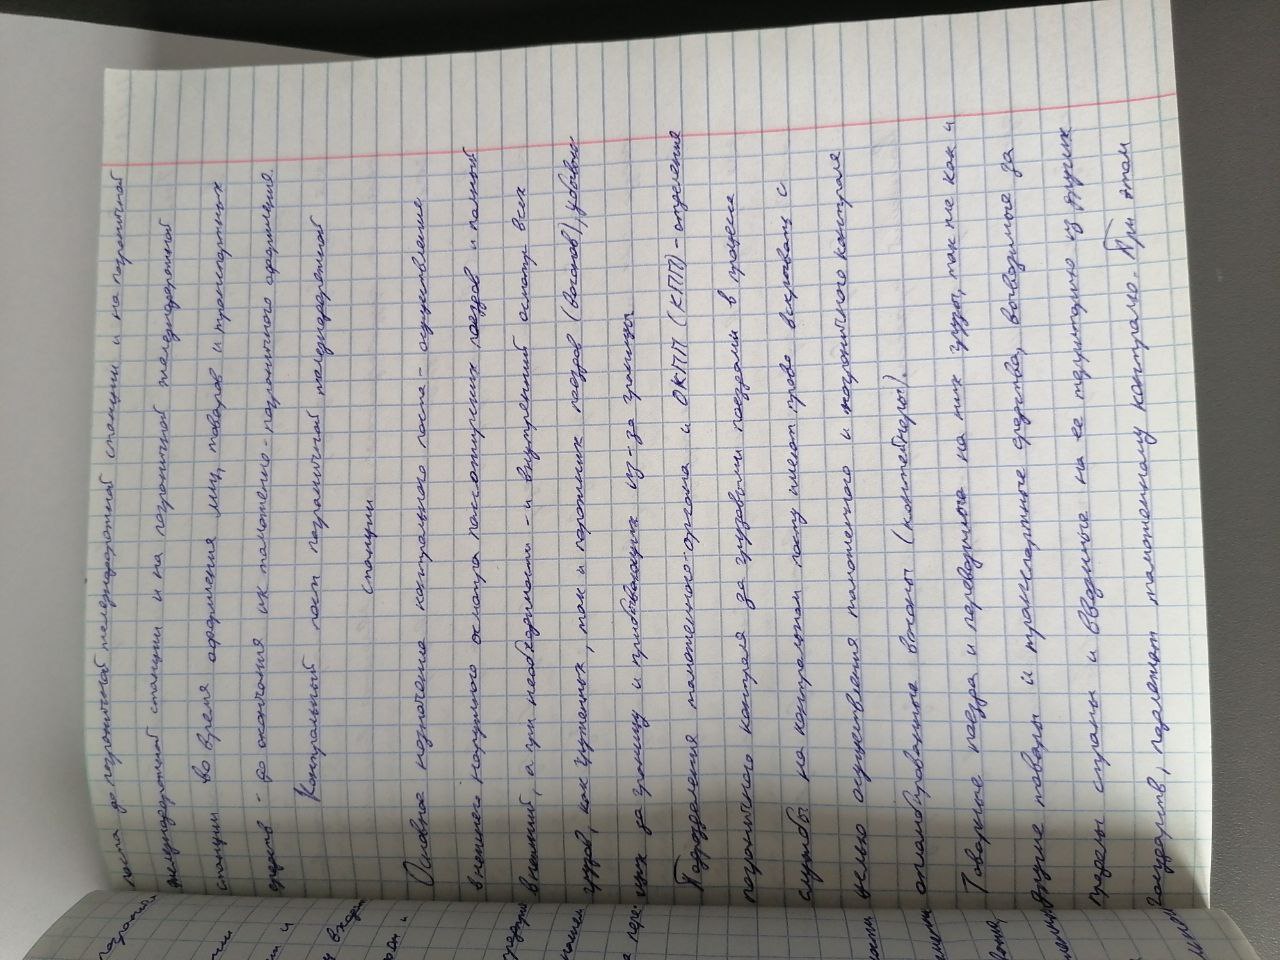 поста до пограничной международной станции и на пограничной
международной станции и на пограничной международной
станции во время оформления лиц, товаров и транспортных
средств - до окончания их таможенно-пограничного оформления.
Контрольный пост пограничной международной
станции
Основное назначение контрольного поста - осуществление
внешнего наружного осмотра пассажирских поездов и полный
внешний, а при необходимости - и внутренний осмотр всех
грузов, как груженных, так и порожних поездов (вагонов),
за границу и прибывающих из-за границы
Подразделения таможенного органа и ОКПП (КПП) - отделения
пограничного контроля за грузовыми поездами в процессе
службы на контрольном посту имеют право вскрывать с
целью осуществления таможенного и пограничного контроля
опломбированные вагоны (контейнеры).
Товарные поезда и перевозимые на них грузы, так же как и
другие товары и транспортные средства, вывозимые за
пределы страны и ввозимые на ее территорию из других
государств, подлежат таможенному контролю. При этом